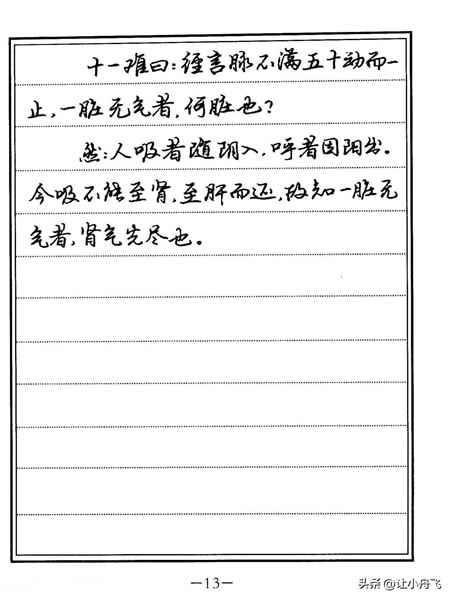 十一难曰：经言脉不满五十动而一
止，一脏无气者，何脏也？
然：人吸者随阴入，呼者因阳出。
今吸不能至肾，至肝而还，故知一脏无
气者，肾气先尽也。
-13-
头条@让小舟飞